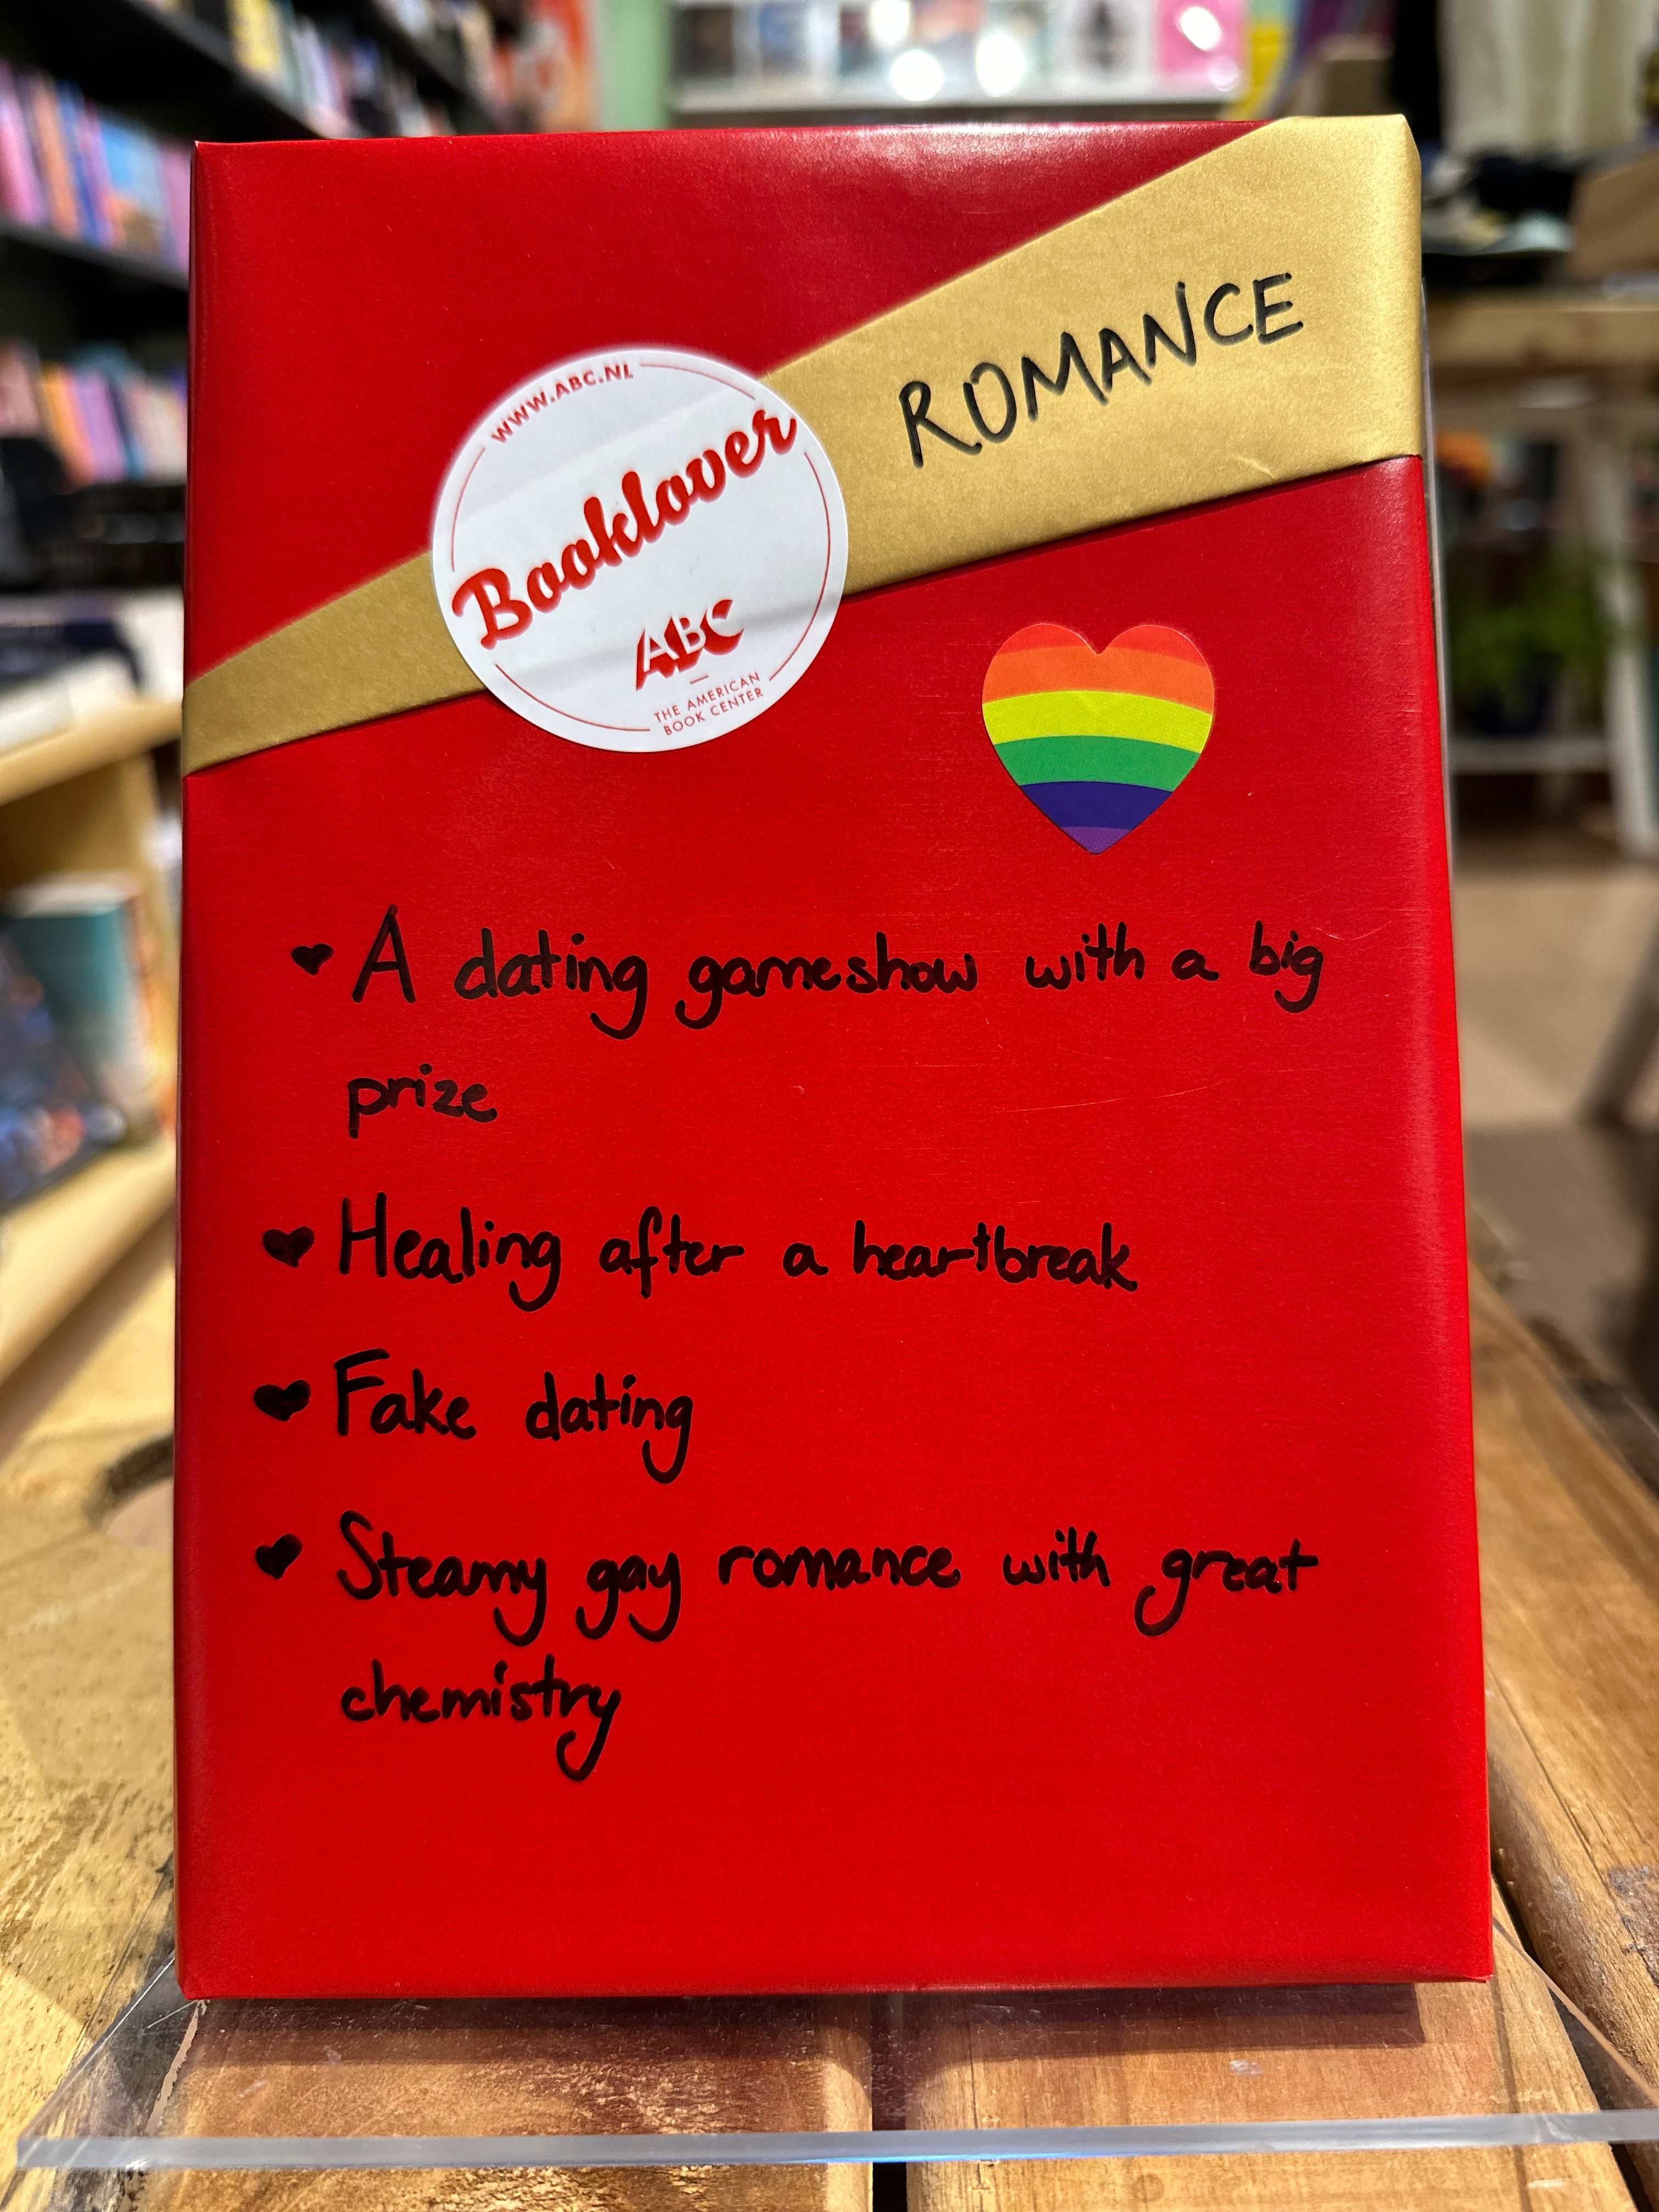 ROMANCE
WWW.ABC.NL
Booklover
ABC
THE AMERICAN
BOOK CENTER
A dating gameshow with a big
prize
Healing after a heartbreak
Fake dating
Steamy gay romance with great
chemistry